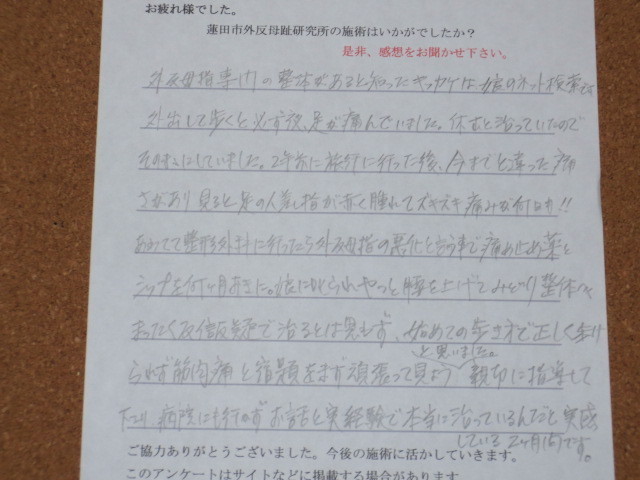 お疲れ様でした。
蓮田市外反母趾研究所の施術はいかがでしたか？
是非、感想をお聞かせ下さい。
外反母指専門の整体があると知ったキッカケは娘のネット検索です
外出して歩くと必ず夜、足が痛んでいました。休むと治っていたので
そのままにしていました。2年前に旅行に行った後、今までと違った痛
さがあり見ると足の人差し指が赤く腫れてズキズキ痛みが何日も!!
あわてて整形外科に行ったら外反母指の悪化と言う事で痛め止め薬と
シップを何ヶ月も 娘に叱られやっと腰を上げてみどり整体へ
まったく反信反疑で治るとは思えず、始めての歩き方で正しく歩け
られず筋肉痛と宿題をまず頑張って見ようと思いました。親切に指導して
下さり病院にも行かずお話と実経験で本当に治っているんだと実感
している2ヶ月目です。
ご協力ありがとうございました。今後の施術に活かしていきます。
このアンケートはサイトなどに掲載する場合があります